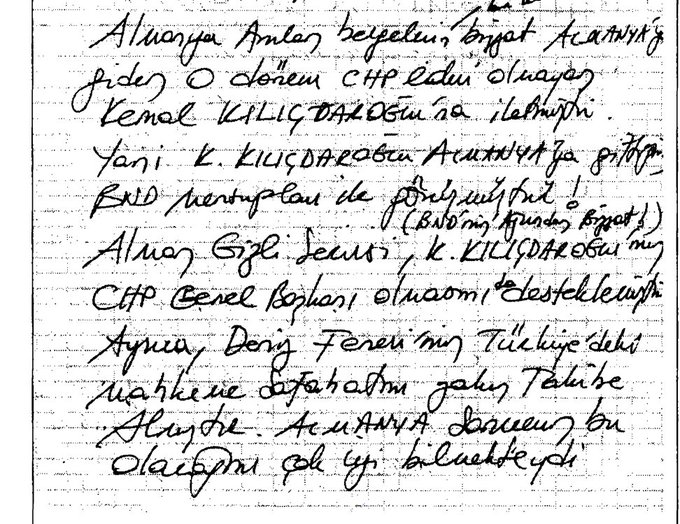 Almanya Anılan belgelerin bizzat ALMANYA'ya
giden O dönem CHP lideri olmayan
Kemal KILIÇDAROĞLU'na iletmiştir.
Yani K. KILIÇDAROĞLU ALMANYA'ya gittiğin
BND mensupları ile görüşmüştür!
(BND'nin Ajından Bizzat!)
Alman Gizli Servisi, K. KILIÇDAROĞLU'nun
CHP Genel Başkanı olmasını da desteklemiştir
Ayrıca, Deniz Feneri'nin Türkiye'deki
mahkeme safahatını yakın Takibe
Almıştır. ALMANYA sonucun bu
olacağını çok iyi bilmekteydi